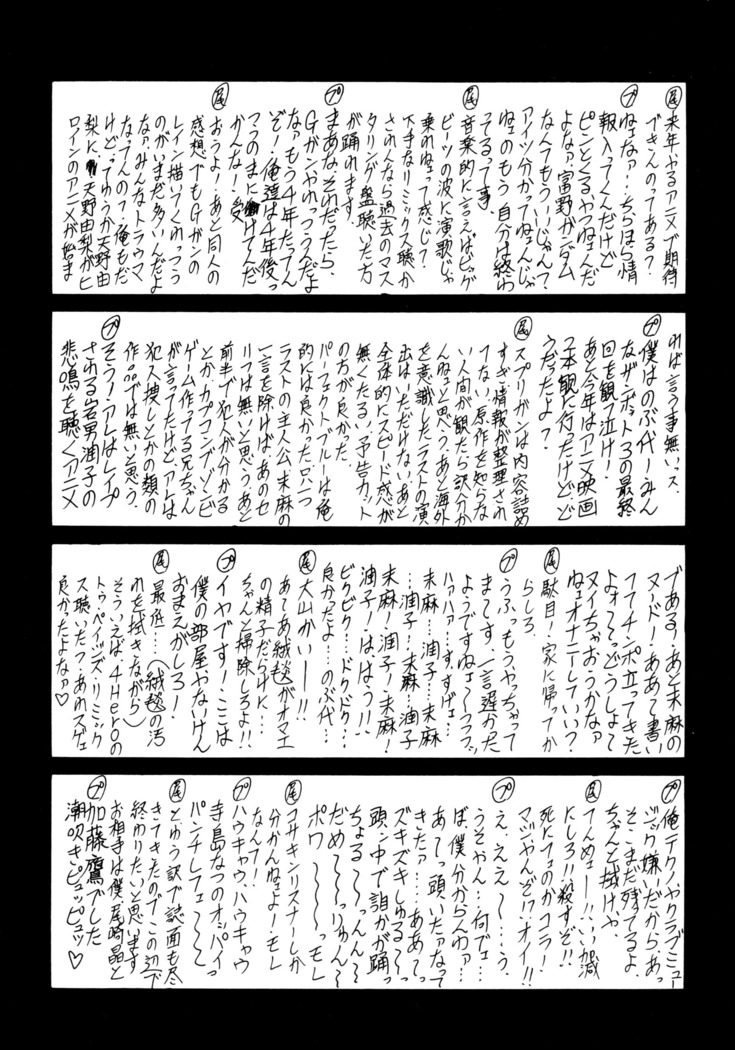 尾 来年やるアニメで期待
できんのってある?
プ ねェなァ…ちらほら情
報入ってくんだけど
ピンとくるやつねェんだ
よなァ、富野がンダム
なんてもういいじゃんて
アイツ分かってねェんじゃ
ねェのもう自分は終わ
ってるって事。
音楽的に言えばビッグ
ビーツの波に演歌じゃ
乗れねェって感じ?
下手なリミックス聴か
されんなら過去のマス
タリング盤聴いた方
が踊れます。
プ まあな、それだったら、
Gガンやれっつうんだよ
なァもう4年たってん
ぞ!俺達は4年後っ
つうのまに受けてんだ
かんな!
尾 おうよ!あと同人の
感想でもGガンの
レイン描いてくれっつう
のがいまだ多いんだよ
なァみんなトラウマ
なってんの?俺もだ
けど。てゆうか天野由
梨に天野由梨がヒ
ロインのアニメが始ま
れば言う事無いっス.
プ 僕はのぶ代ーみん
なザンボット3の最終
回を観って泣け!
あと今年はアニメ映画
2本観に行ったけどど
うだったよ?
尾 スプリガンは内容詰め
すぎ、情報が整理され
てない、原作を知らな
い人間が観たら訳分か
んねェと思う、あと海外
を意識したラストの演
出はいただけない、あと
全体的にスピード感が
無くたるい、予告カット
の方が良かった
パーフェクトブルーは俺
的には良かった、只一つ
ラストの主人公未麻の
一言を除けばあのセ
リフは無いと思う、あと
前半で犯人が分かる
とかカプコンでゾンビ
ゲーム作ってる兄ちゃん
が言ってたけど、アレは
犯人捜しとかの類の
作品では無いと思う.
プ そう!アレはレイプ
される岩男潤子の
悲鳴を聴くアニメ
である!あと未麻の
ヌード!ああて書い
ててチンポ立ってきた
よォ〜っどうしよて
ヌイちゃおうかなァ
ねェオナニーしていい?
尾 駄目!家に帰ってか
らしろ、
プ うふっもうやっちゃって
まーてす、一言遅かった
ようですねェ〜フフフッ
ハァハァ…す、すげェ…
未麻…潤子…未麻
…潤子…未麻…潤子
未麻!潤子!未麻!
潤子!は、はう!!
ビクビク…ドクドク…
良かったよ…のぶ代…
尾 大山かいー!!
あーああ絨毯がオマエ
の精子だらけに…
ちゃんと掃除しろよ!!
プ イヤです!ここは
僕の部屋やないけん
おまえがしろ!
尾 最低…(絨毯の汚
れを拭きながら)
そういえば、4HEROの
トゥ・ペイジズ・リミック
ス聴いたっつあれスゲェ
良かったよなァ♡
プ 俺テクノやクラブミュー
ジック嫌いだからあっ
そこまだ残てるよ、
ちゃんと拭けや、
尾 てんめェー!!いい加減
にしろ!!殺すぞ!!
死にてェのかコラ!
マジやんぞ!?オイ!!
プ え、ええ〜…う、
うそやん…何でェ…
ば僕分からんわァ…
あーっ頭いたァなって
きたァ…ああーっ
ズキズキしゅる〜っ
頭ン中で誰かが踊っ
ちょる〜っんん〜
だめ〜〜っりゅん〜
ポワ〜〜〜っモレ
尾 コサキンリスナーしか
分かんねェよ!モレ
なんて!
プ ハウキャウ、ハウキャウ
寺島なつのオッパイっ
パンチレフェ〜〜〜
尾 とゆう訳で誌面も尽
きてきたのでこの辺で
終わりたいと思います
お相手は僕、尾崎晶と
プ 加藤鷹でした
潮吹きピュッピュッ♡